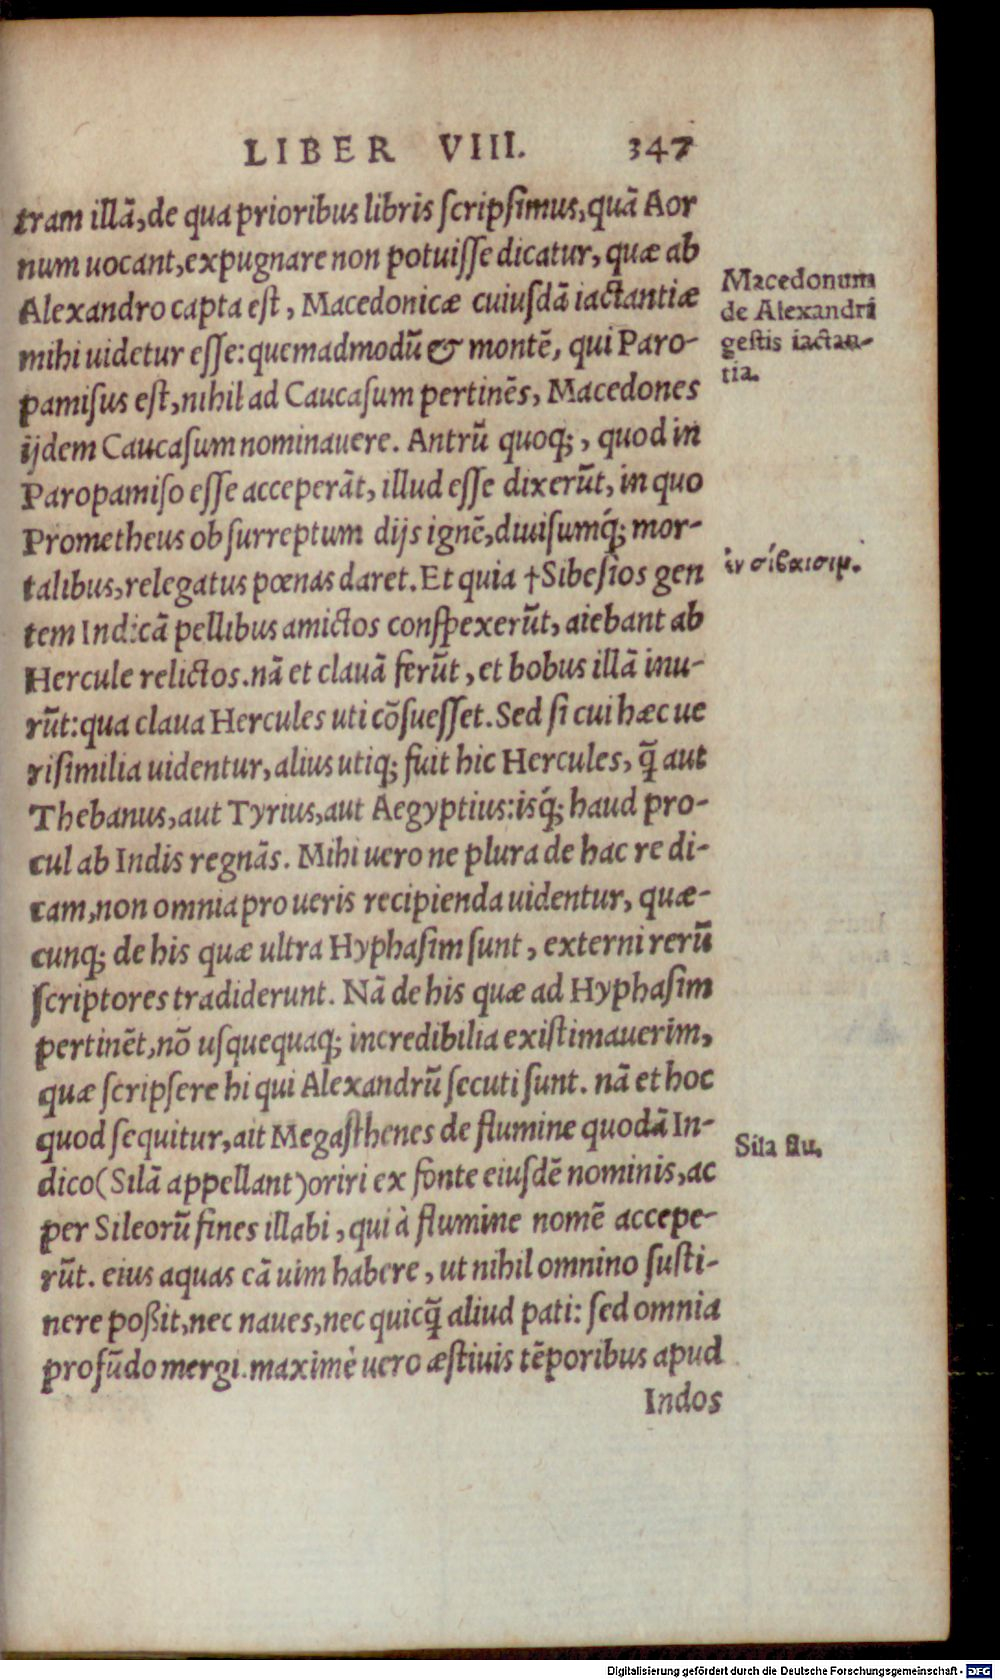 LIBER VIII. 347
tram illã, de qua prioribus libris ſcripſimus, quã Aor
num uocant, expugnare non potuiſſe dicatur, quæ ab
Alexandro capta eſt, Macedonicæ cuiuſdã iactantiæ
mihi uidetur eſſe: quemadmodũ & montẽ, qui Paro-
pamiſus eſt, nihil ad Caucaſum pertinẽs, Macedones
ijdem Caucaſum nominauere. Antrũ quoq;, quod in
Paropamiſo eſſe acceperãt, illud eſſe dixerũt, in quo
Prometheus ob ſurreptum dijs ignẽ, diuiſumq́; mor-
talibus, relegatus pœnas daret. Et quia †Sibeſios gen
tem Indicã pellibus amictos conſpexerũt, aiebant ab
Hercule relictos. nã et clauã ferũt, et bobus illã inu-
rũt: qua claua Hercules uti cõſueſſet. Sed ſi cui hæc ue
riſimilia uidentur, alius utiq; fuit hic Hercules, q̃ aut
Thebanus, aut Tyrius, aut Aegyptius: isq́; haud pro-
cul ab Indis regnãs. Mihi uero ne plura de hac re di-
cam, non omnia pro ueris recipienda uidentur, quæ-
cunq; de his quæ ultra Hyphaſim ſunt, externi rerũ
ſcriptores tradiderunt. Nã de his quæ ad Hyphaſim
pertinẽt, nõ uſquequaq; incredibilia exiſtimauerim,
quæ ſcripſere hi qui Alexandrũ ſecuti ſunt. nã et hoc
quod ſequitur, ait Megaſthenes de flumine quodã In-
dico (Silã appellant) oriri ex fonte eiuſdẽ nominis, ac
per Sileorũ fines illabi, qui à flumine nomẽ accepe-
rũt. eius aquas eã uim habere, ut nihil omnino ſuſti-
nere poßit, nec naues, nec quicq̃ aliud pati: ſed omnia
profũdo mergi. maximè uero æſtiuis tẽporibus apud
Indos
Macedonum
de Alexandri
geſtis iactan-
tia.
ἐν σίβαισιμ.
Sila flu.
Digitalisierung gefördert durch die Deutsche Forschungsgemeinschaft - DFG